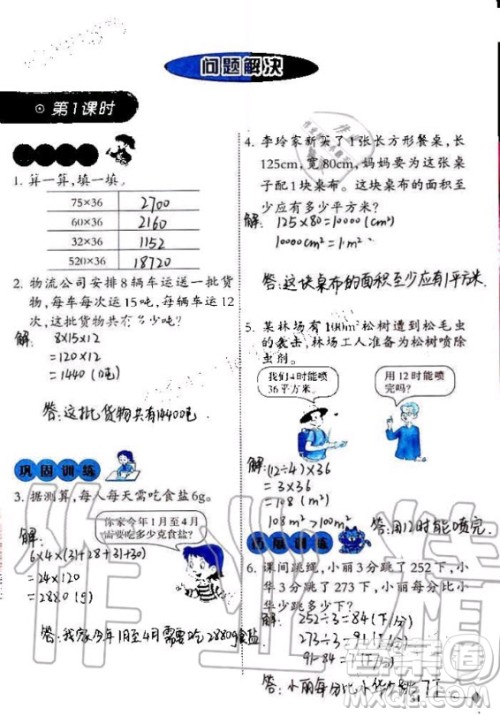 问题解决
第1课时
1. 算一算,填一填。
75×36 2700
60×36 2160
32×36 1152
520×36 18720
2. 物流公司安排8辆车运送一批货
物,每车每次运15吨,每辆车运12
次,这批货物共有多少吨?
解:
8×15×12
=120×12
=1440(吨)
答:这批货物共有14400吨.
巩固训练
3. 据测算,每人每天需吃食盐6g。
你家今年1月至4月
需要吃多少克食盐?
解:
6×4×(31+28+31+30)
=24×120
=2880(g)
答:我家今年1月至4月需要吃2880g食盐
4. 李玲家新买了1张长方形餐桌,长
125cm,宽80cm,妈妈要为这张桌
子配1块桌布。这块桌布的面积至
少应有多少平方米?
解:
125×80=10000(cm²)
10000cm²=1m²
答:这块桌布的面积至少应有1平方米.
5. 某林场有100m²松树遭到松毛虫
的袭击,林场工人准备为松树喷除
虫剂。
我们4时能喷
36平方米。
用12时能喷
完吗?
解:
(12÷4)×36
=3×36
=108(m²)
108m²>100m²
答:用12时能喷完.
6. 课间跳绳,小丽3分跳了252下,小
华3分跳了273下,小丽每分比小
华少跳多少下?
解:
252÷3=84(下/分)
273÷3=91(下/分)
91-84=(下/分)